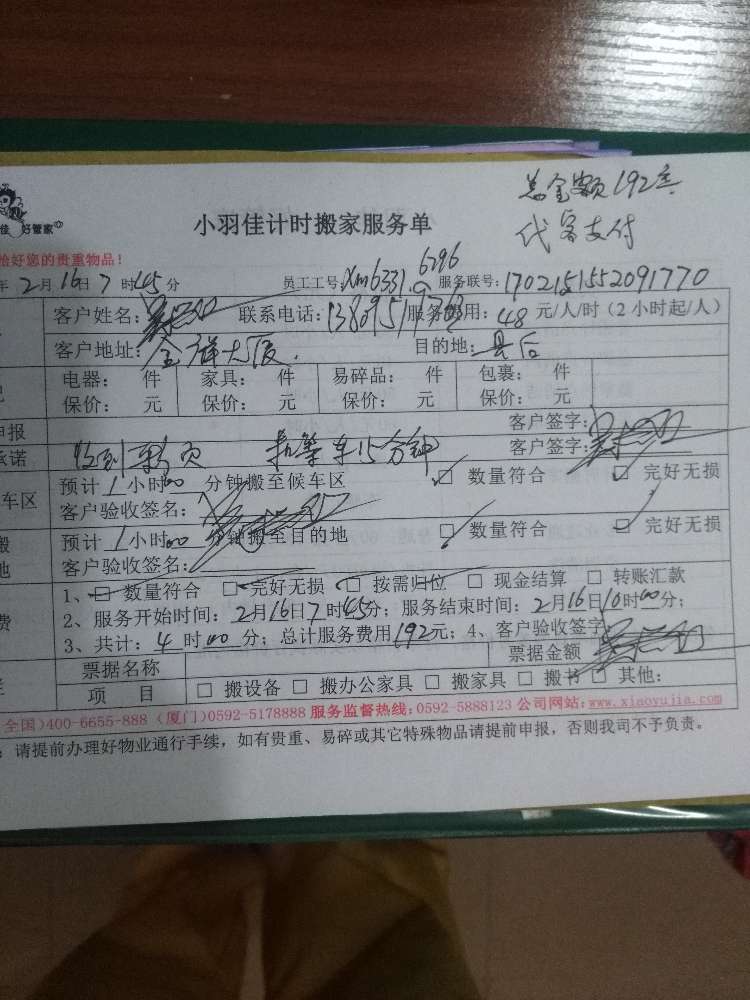 总金额192元
代客支付
佳 好管家
小羽佳计时搬家服务单
您的贵重物品!
年2月16日7时45分 员工工号:xm6331 6296 服务联号:1702151552091770
客户姓名: 联系电话: 服务费用:48元/人/时(2小时起/人)
客户地址:金祥大厦 目的地:县后
电器: 件 家具: 件 易碎品: 件 包裹: 件
保价: 元 保价: 元 保价: 元 保价: 元
申报 客户签字:
承诺 收到 扣等车15分钟 客户签字:
车区 预计1小时00分钟搬至候车区 □数量符合 □完好无损
客户验收签名:
搬 预计1小时00分钟搬至目的地 □数量符合 □完好无损
地 客户验收签名:
1、□数量符合 □完好无损 □按需归位 □现金结算 □转账汇款
费 2、服务开始时间:2月16日7时45分;服务结束时间:2月16日10时00分;
3、共计:4时00分;总计服务费用192元;4、客户验收签字
票据名称 票据金额
项 目 □搬设备 □搬办公家具 □搬家具 □搬书 □其他:
全国)400-6655-888 (厦门)0592-5178888 服务监督热线:0592-5888123 公司网站:www.xiaoyujia.com
:请提前办理好物业通行手续,如有贵重、易碎或其它特殊物品请提前申报,否则我司不予负责。